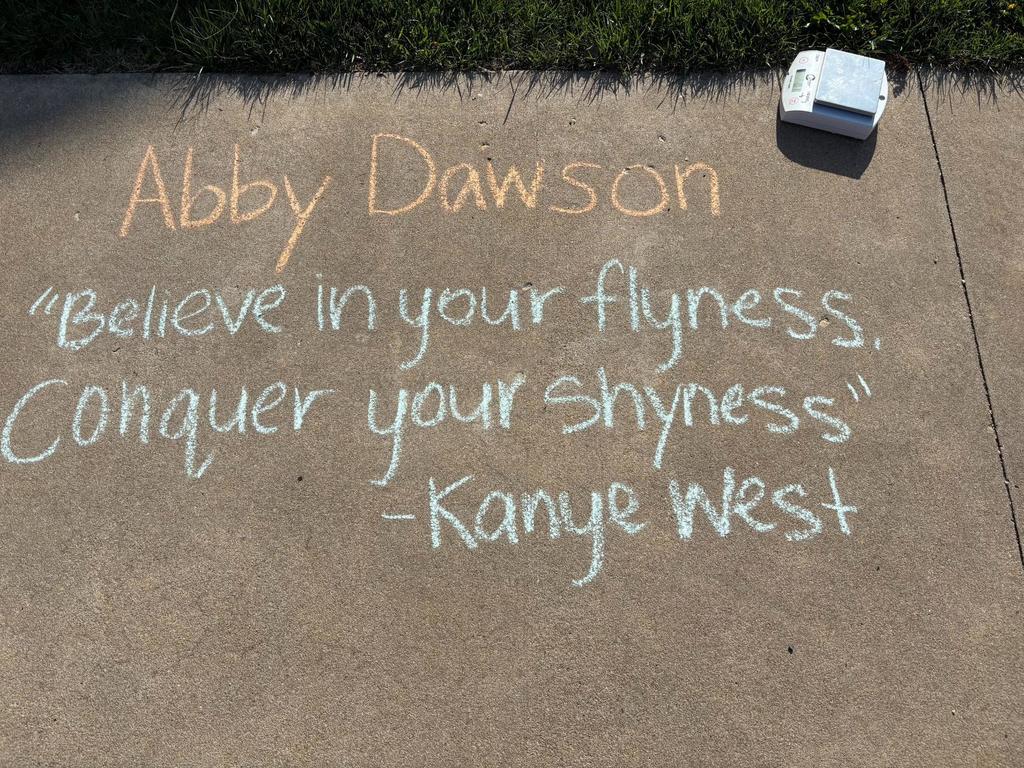 Abby Dawson
"Believe in your flyness.
Conquer your shyness"
-Kanye West